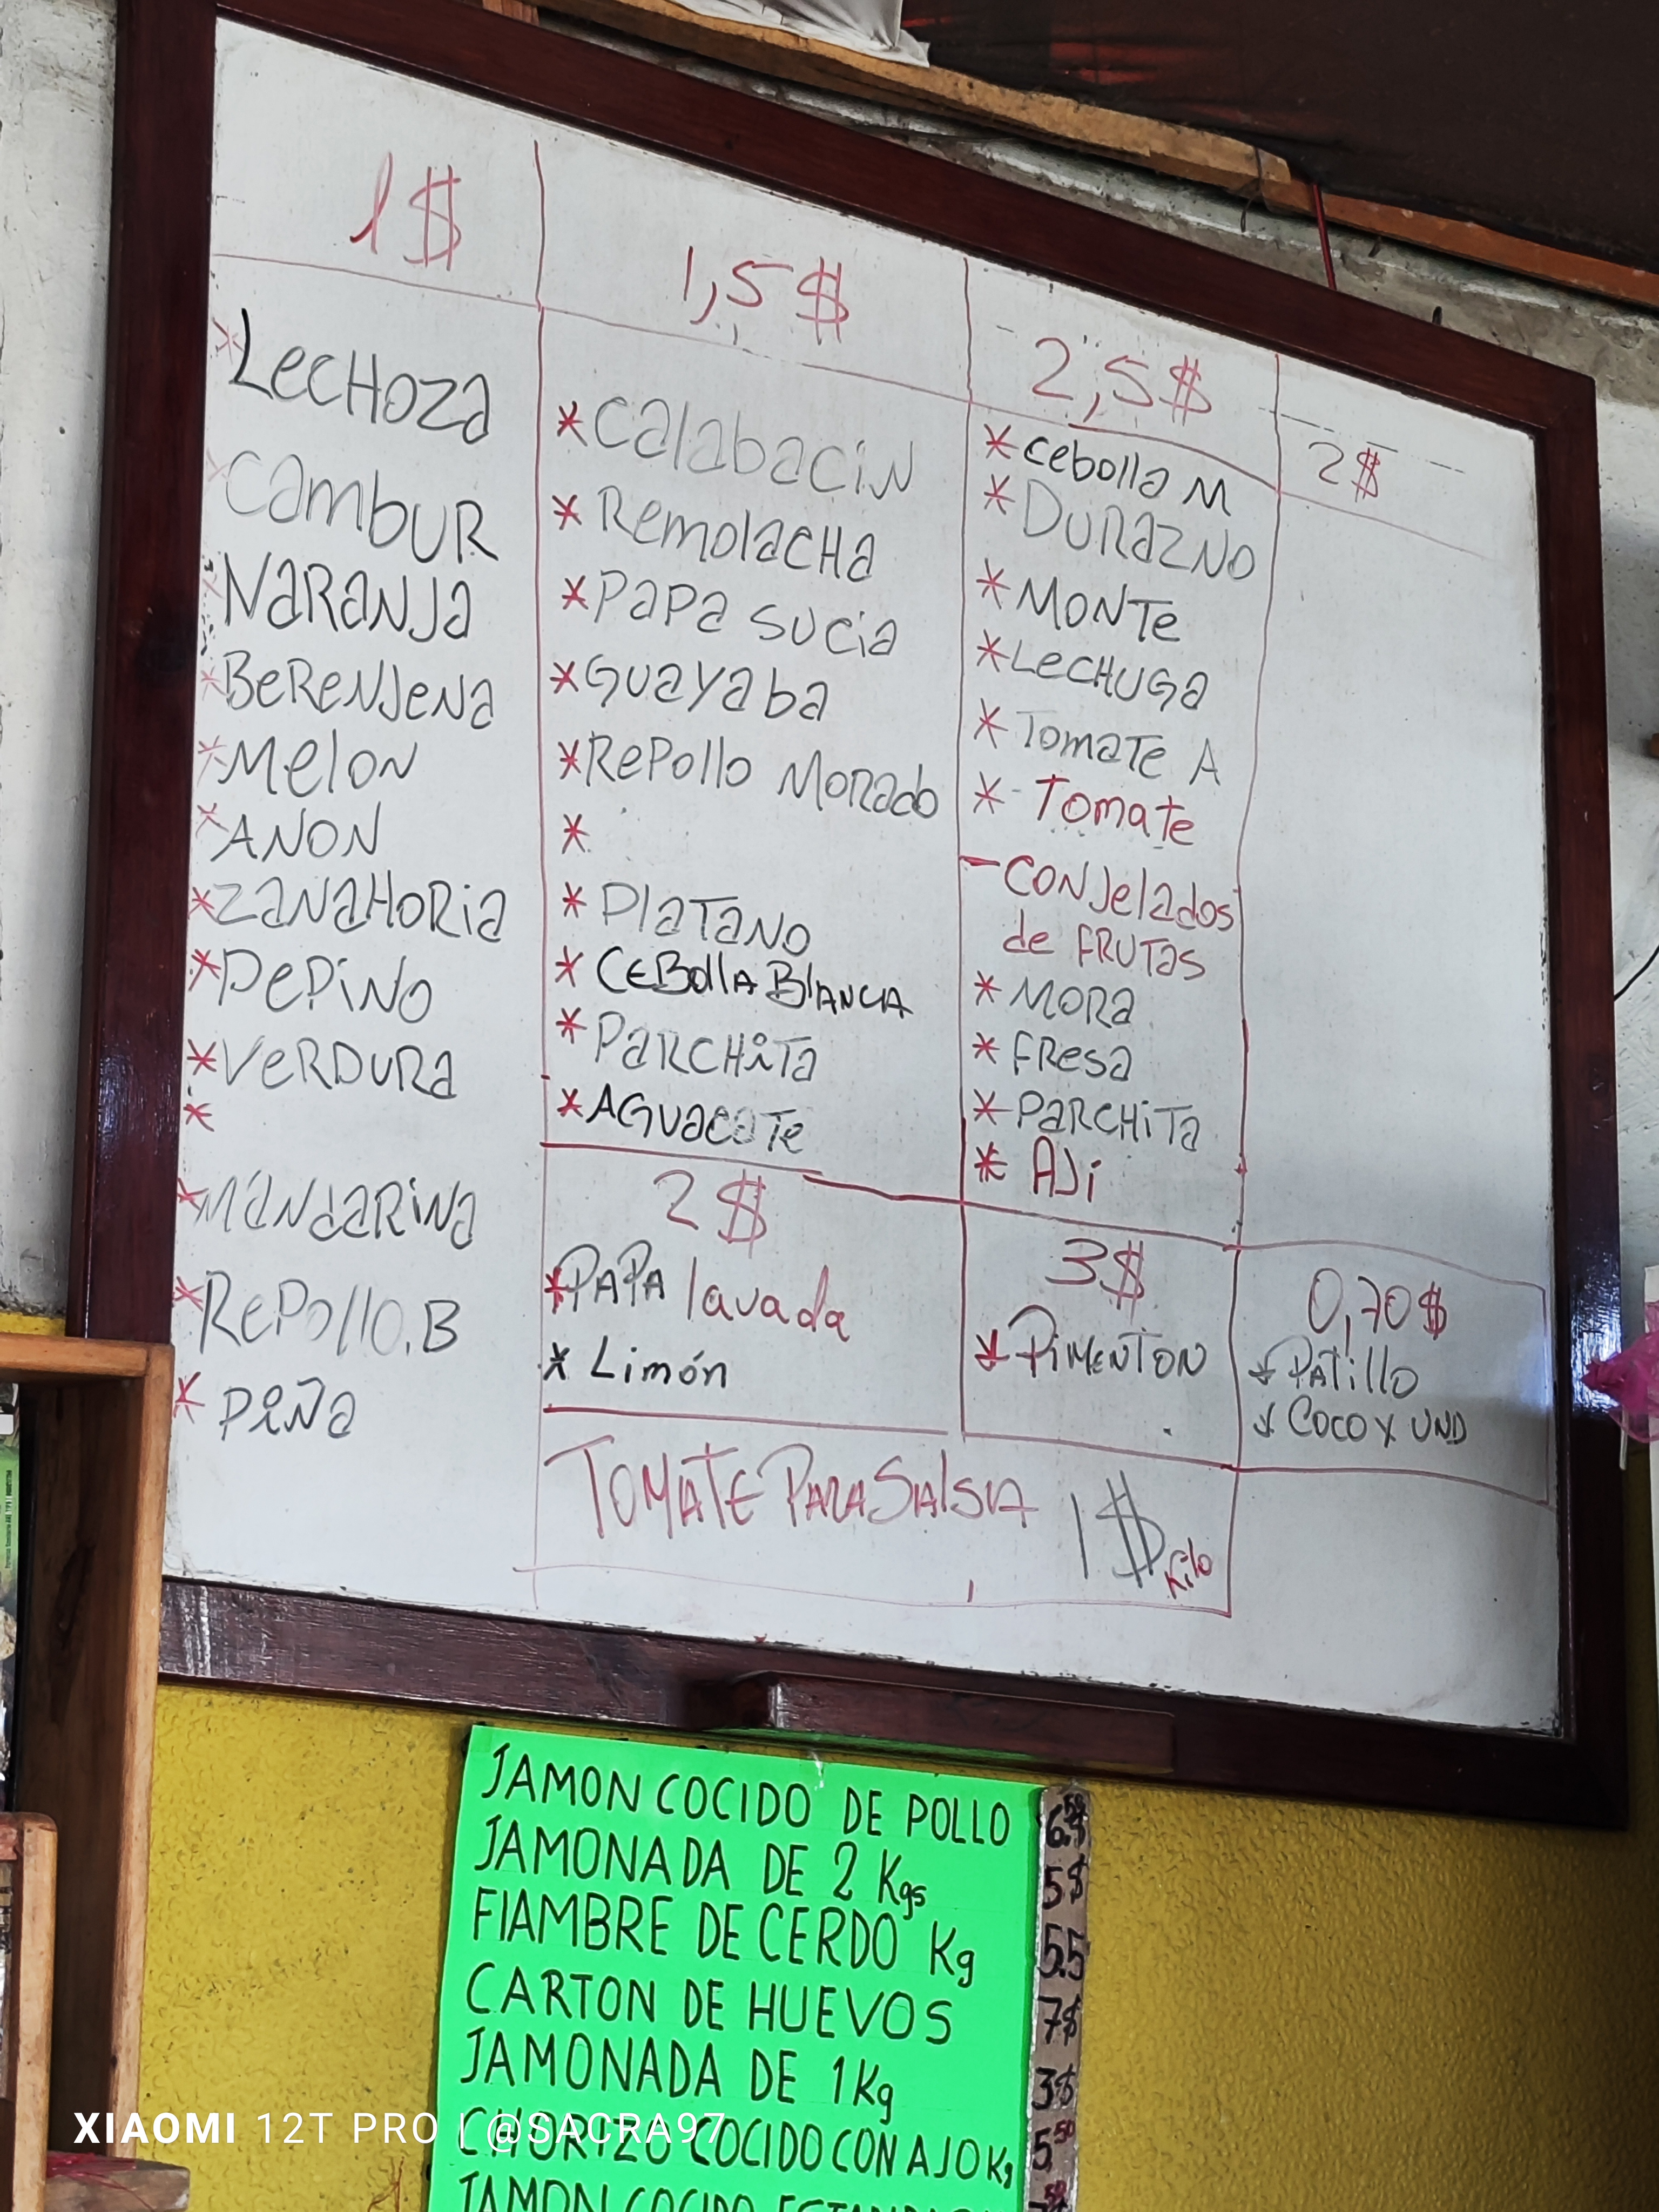 1$
* LecHoza
* Cambur
* Naranja
* Berenjena
* Melon
* Anon
* ZanaHoria
* Pepino
* Verdura
*
* Mandarina
* Repollo.B
* Piña
1,5$
* Calabacin
* RemolacHa
* Papa sucia
* Guayaba
* Repollo Morado
*
* Platano
* Cebolla Blanca
* ParcHita
* Aguacate
2$
* Papa lavada
* Limón
2,5$
* Cebolla M
* Durazno
* Monte
* LecHuga
* Tomate A
* - Tomate
- Conjelados
de Frutas
* Mora
* Fresa
* ParcHita
* Aji
3$
* Pimenton
2$
0,70$
* Patillo
* Coco x UND
Tomate Para Salsa 1$ Kilo
JAMON COCIDO DE POLLO 6.50$
JAMONADA DE 2 Kgs 5$
FIAMBRE DE CERDO Kg 5.5
CARTON DE HUEVOS 7$
JAMONADA DE 1Kg 3$
CHORIZO COCIDO CON AJO Kg 5.50
JAMON COCIDO
XIAOMI 12T PRO | @SACRA97